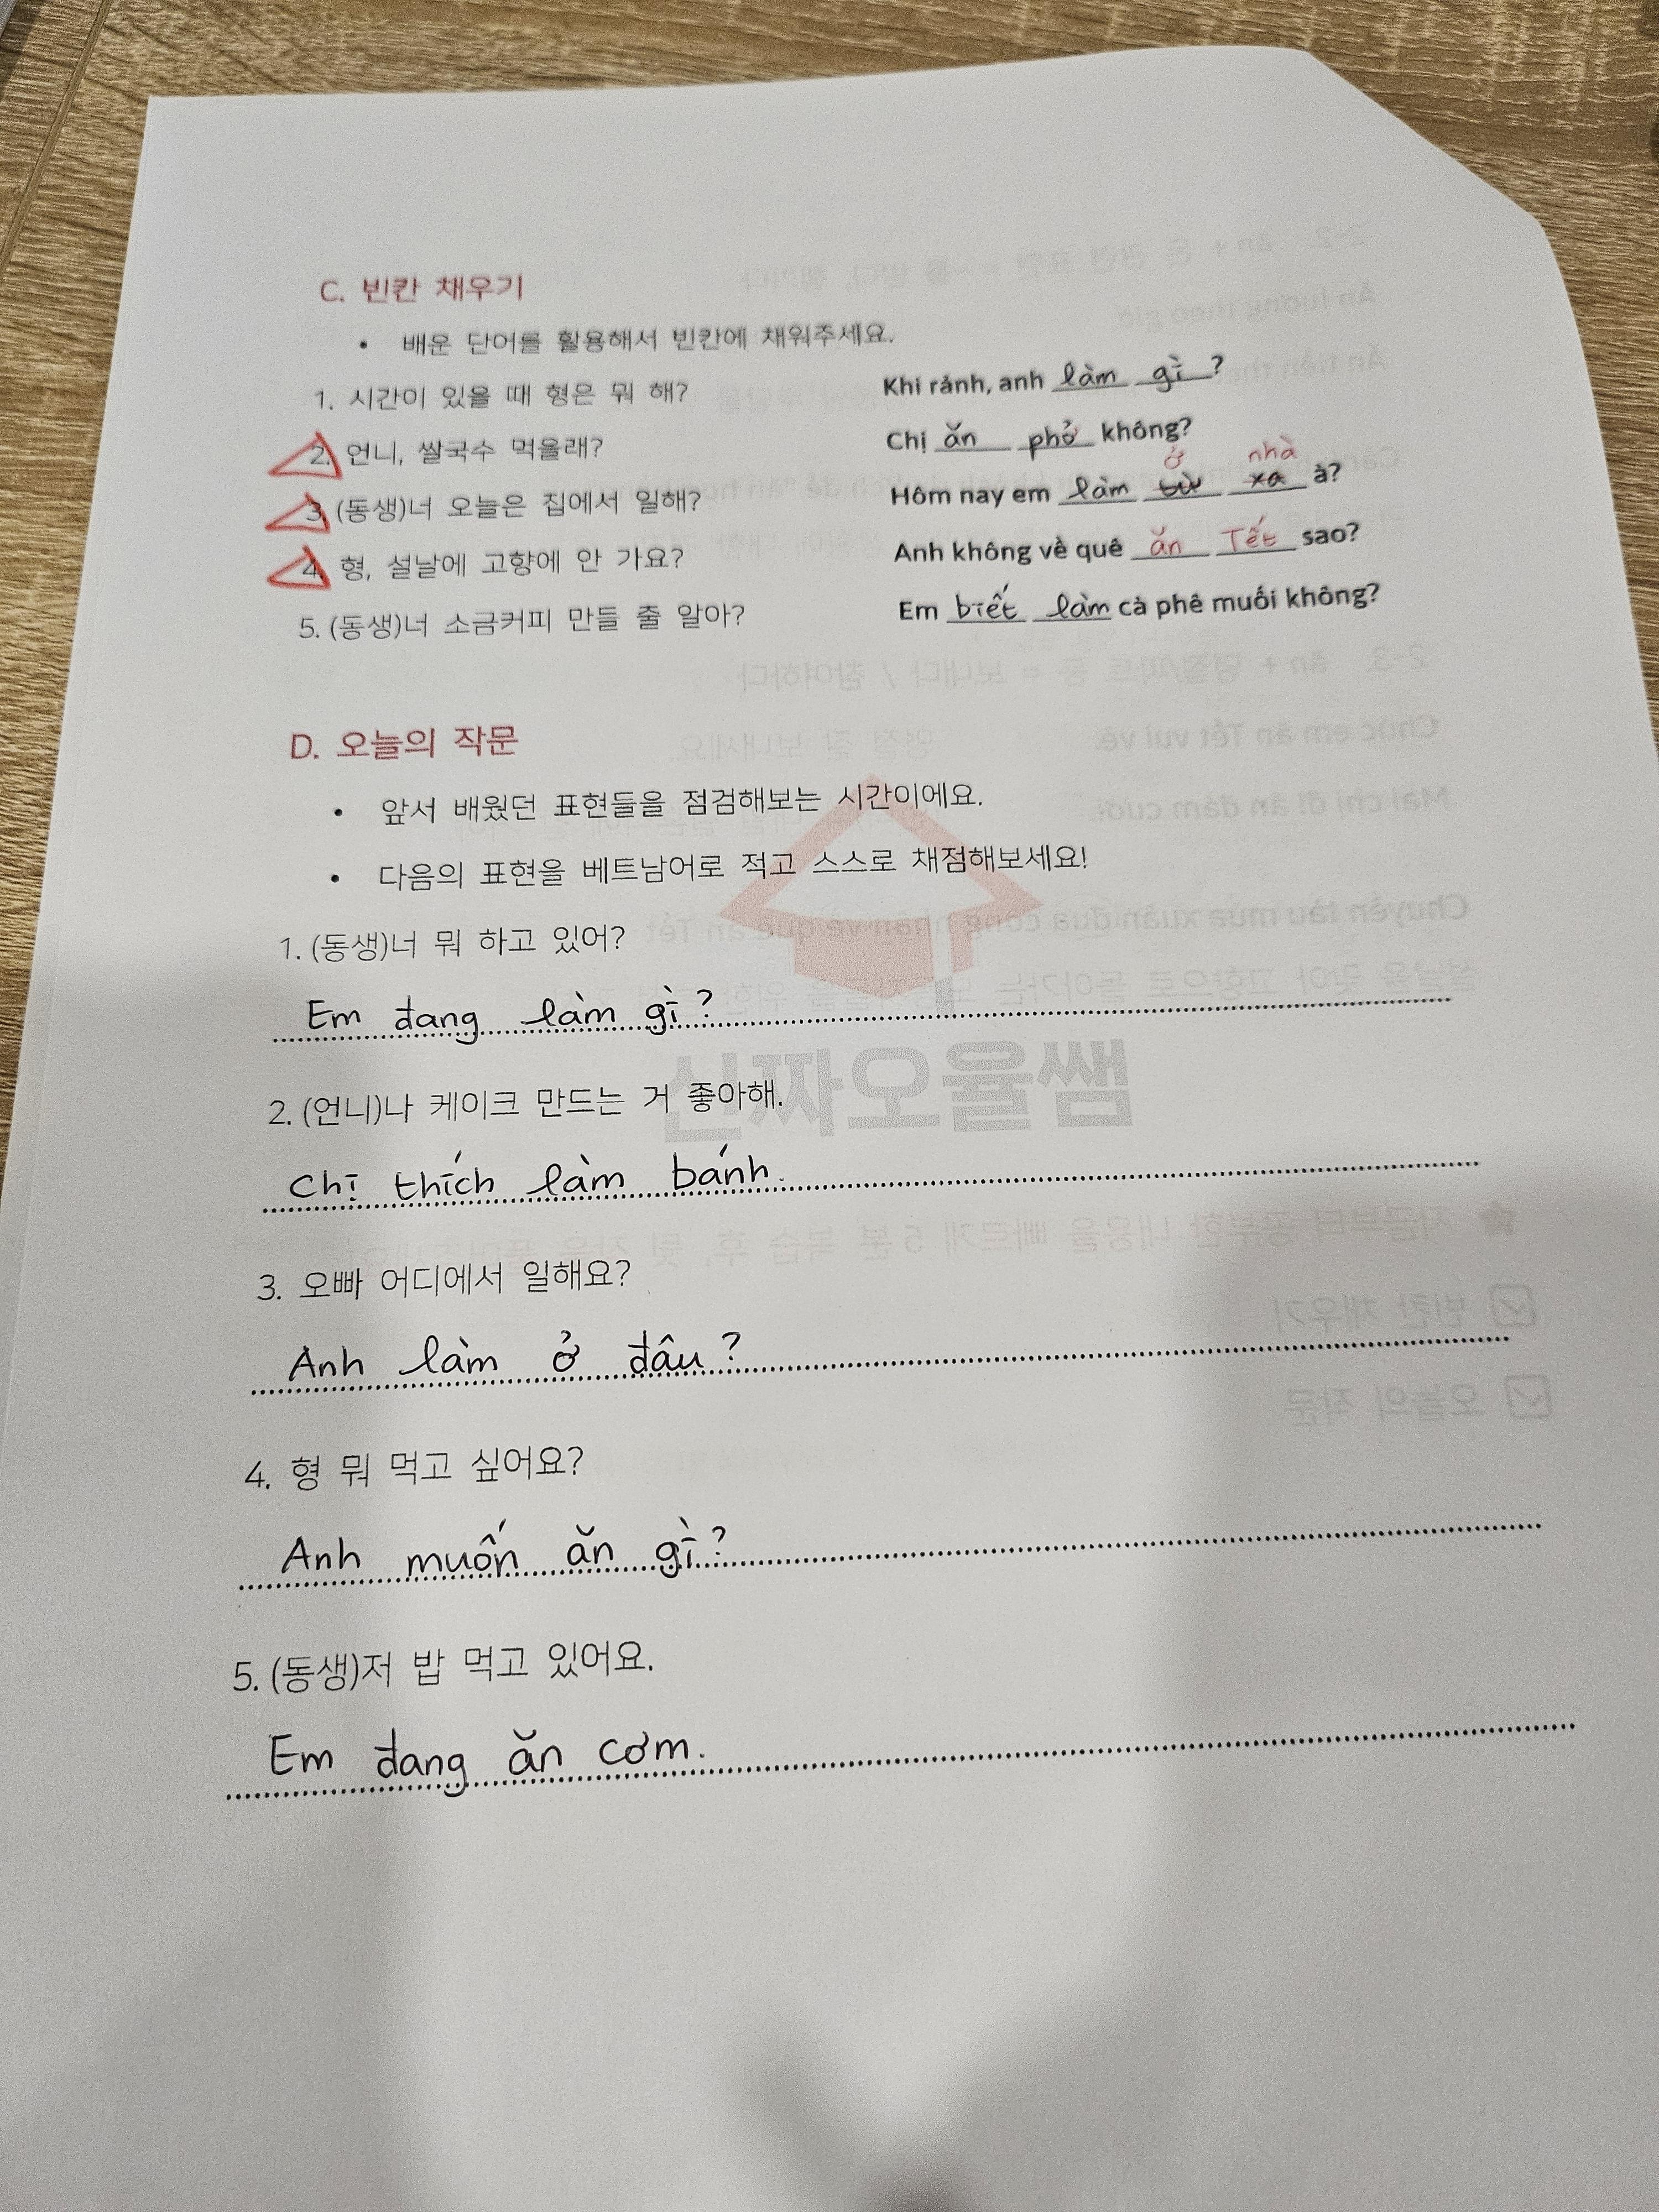 C. 빈칸 채우기
• 배운 단어를 활용해서 빈칸에 채워주세요.
1. 시간이 있을 때 형은 뭐 해? Khi rảnh, anh làm gì ?
2. 언니, 쌀국수 먹을래? Chị ăn phở không?
ở nhà
3. (동생)너 오늘은 집에서 일해? Hôm nay em làm từ xa à?
4. 형, 설날에 고향에 안 가요? Anh không về quê ăn Tết sao?
5. (동생)너 소금커피 만들 줄 알아? Em biết làm cà phê muối không?
D. 오늘의 작문
• 앞서 배웠던 표현들을 점검해보는 시간이에요.
• 다음의 표현을 베트남어로 적고 스스로 채점해보세요!
1. (동생)너 뭐 하고 있어?
Em đang làm gì ?
신짜오율쌤
2. (언니)나 케이크 만드는 거 좋아해.
Chị thích làm bánh.
3. 오빠 어디에서 일해요?
Anh làm ở đâu ?
4. 형 뭐 먹고 싶어요?
Anh muốn ăn gì ?
5. (동생)저 밥 먹고 있어요.
Em đang ăn cơm.